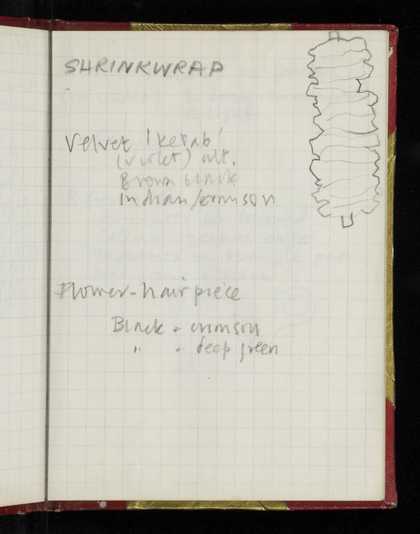 SHRINKWRAP
Velvet 'kebab'
(violet) alt.
Brown black
Indian/crimson
Flower-hairpiece
Black - crimson
" - deep green